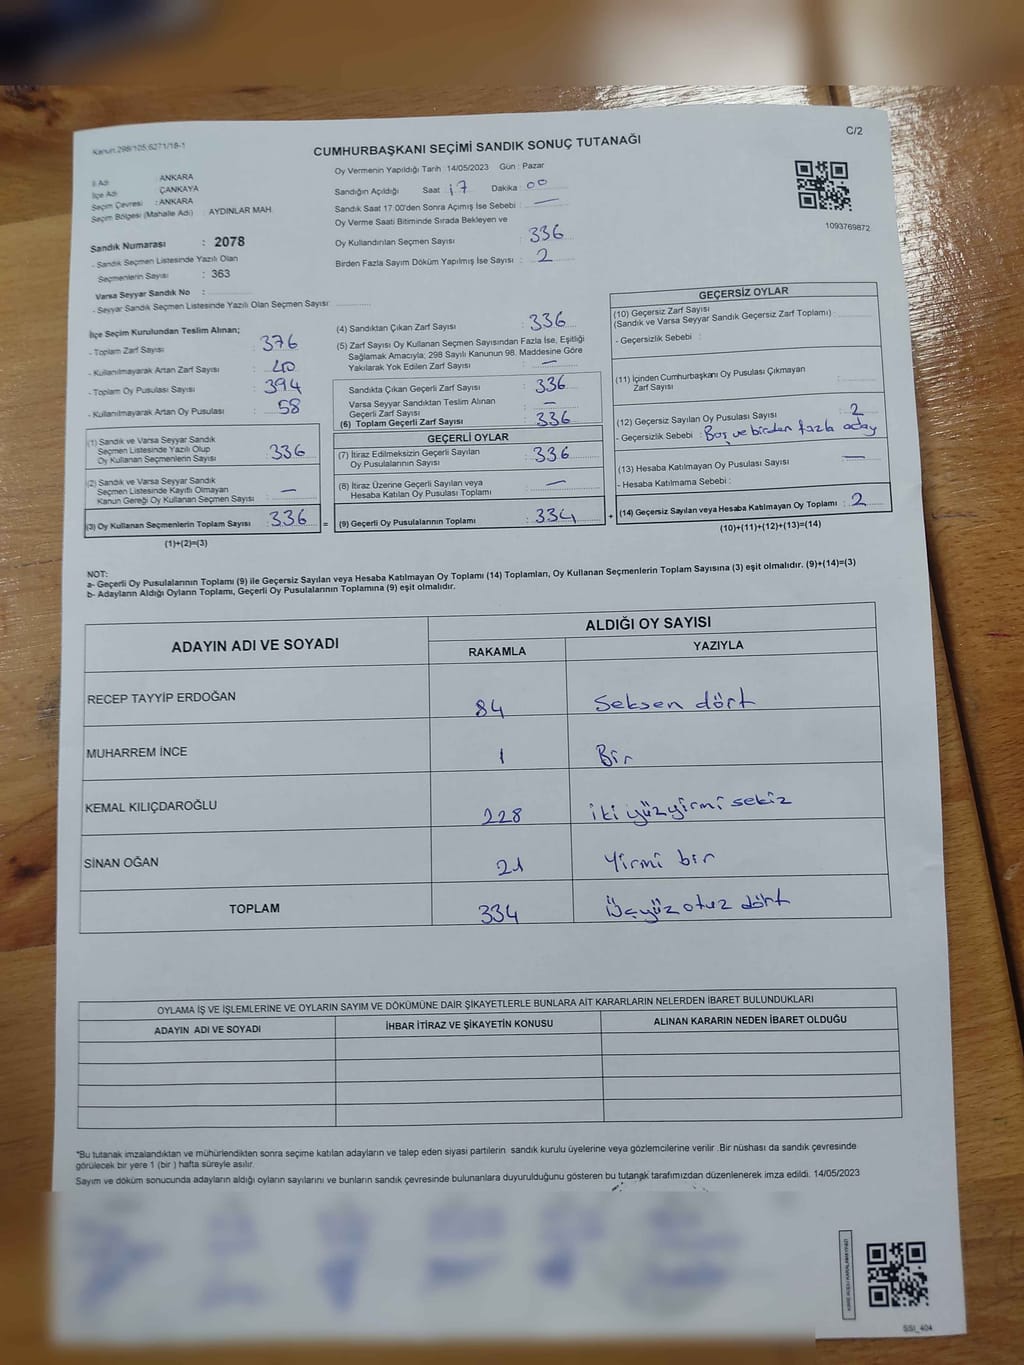 Kanun:298/105;6271/18-1
C/2
CUMHURBAŞKANI SEÇİMİ SANDIK SONUÇ TUTANAĞI
İl Adı : ANKARA
İlçe Adı : ÇANKAYA
Seçim Çevresi : ANKARA
Seçim Bölgesi (Mahalle Adı) : AYDINLAR MAH.
Sandık Numarası : 2078
- Sandık Seçmen Listesinde Yazılı Olan
Seçmenlerin Sayısı : 363
Varsa Seyyar Sandık No :
- Seyyar Sandık Seçmen Listesinde Yazılı Olan Seçmen Sayısı:
Oy Vermenin Yapıldığı Tarih : 14/05/2023 Gün : Pazar
Sandığın Açıldığı Saat : 17 Dakika : 00
Sandık Saat 17.00'den Sonra Açımış İse Sebebi : —
Oy Verme Saati Bitiminde Sırada Bekleyen ve
Oy Kullandırılan Seçmen Sayısı : 336
Birden Fazla Sayım Döküm Yapılmış İse Sayısı : 2
1093769872
İlçe Seçim Kurulundan Teslim Alınan;
- Toplam Zarf Sayısı : 376
- Kullanılmayarak Artan Zarf Sayısı : 40
- Toplam Oy Pusulası Sayısı : 394
- Kullanılmayarak Artan Oy Pusulası : 58
(1) Sandık ve Varsa Seyyar Sandık
Seçmen Listesinde Yazılı Olup
Oy Kullanan Seçmenlerin Sayısı : 336
(2) Sandık ve Varsa Seyyar Sandık
Seçmen Listesinde Kayıtlı Olmayan
Kanun Gereği Oy Kullanan Seçmen Sayısı : —
(3) Oy Kullanan Seçmenlerin Toplam Sayısı : 336
(1)+(2)=(3)
=
(4) Sandıktan Çıkan Zarf Sayısı : 336
(5) Zarf Sayısı Oy Kullanan Seçmen Sayısından Fazla İse, Eşitliği
Sağlamak Amacıyla; 298 Sayılı Kanunun 98. Maddesine Göre
Yakılarak Yok Edilen Zarf Sayısı : —
Sandıkta Çıkan Geçerli Zarf Sayısı : 336
Varsa Seyyar Sandıktan Teslim Alınan
Geçerli Zarf Sayısı : —
(6) Toplam Geçerli Zarf Sayısı : 336
GEÇERLİ OYLAR
(7) İtiraz Edilmeksizin Geçerli Sayılan
Oy Pusulalarının Sayısı : 336
(8) İtiraz Üzerine Geçerli Sayılan veya
Hesaba Katılan Oy Pusulası Toplamı : —
(9) Geçerli Oy Pusulalarının Toplamı : 334
+
GEÇERSİZ OYLAR
(10) Geçersiz Zarf Sayısı
(Sandık ve Varsa Seyyar Sandık Geçersiz Zarf Toplamı) :
- Geçersizlik Sebebi :
(11) İçinden Cumhurbaşkanı Oy Pusulası Çıkmayan
Zarf Sayısı :
(12) Geçersiz Sayılan Oy Pusulası Sayısı : 2
- Geçersizlik Sebebi : Boş ve birden fazla aday
(13) Hesaba Katılmayan Oy Pusulası Sayısı : —
- Hesaba Katılmama Sebebi :
(14) Geçersiz Sayılan veya Hesaba Katılmayan Oy Toplamı : 2
(10)+(11)+(12)+(13)=(14)
NOT:
a- Geçerli Oy Pusulalarının Toplamı (9) ile Geçersiz Sayılan veya Hesaba Katılmayan Oy Toplamı (14) Toplamları, Oy Kullanan Seçmenlerin Toplam Sayısına (3) eşit olmalıdır. (9)+(14)=(3)
b- Adayların Aldığı Oyların Toplamı, Geçerli Oy Pusulalarının Toplamına (9) eşit olmalıdır.
ADAYIN ADI VE SOYADI
ALDIĞI OY SAYISI
RAKAMLA YAZIYLA
RECEP TAYYİP ERDOĞAN 84 Seksen dört
MUHARREM İNCE 1 Bir
KEMAL KILIÇDAROĞLU 228 iki yüz yirmi sekiz
SİNAN OĞAN 21 Yirmi bir
TOPLAM 334 Üçyüz otuz dört
OYLAMA İŞ VE İŞLEMLERİNE VE OYLARIN SAYIM VE DÖKÜMÜNE DAİR ŞİKAYETLERLE BUNLARA AİT KARARLARIN NELERDEN İBARET BULUNDUKLARI
ADAYIN ADI VE SOYADI İHBAR İTİRAZ VE ŞİKAYETİN KONUSU ALINAN KARARIN NEDEN İBARET OLDUĞU
*Bu tutanak imzalandıktan ve mühürlendikten sonra seçime katılan adayların ve talep eden siyasi partilerin sandık kurulu üyelerine veya gözlemcilerine verilir .Bir nüshası da sandık çevresinde
görülecek bir yere 1 (bir ) hafta süreyle asılır.
Sayım ve döküm sonucunda adayların aldığı oyların sayılarını ve bunların sandık çevresinde bulunanlara duyurulduğunu gösteren bu tutanak tarafımızdan düzenlenerek imza edildi. 14/05/2023
SSI_404